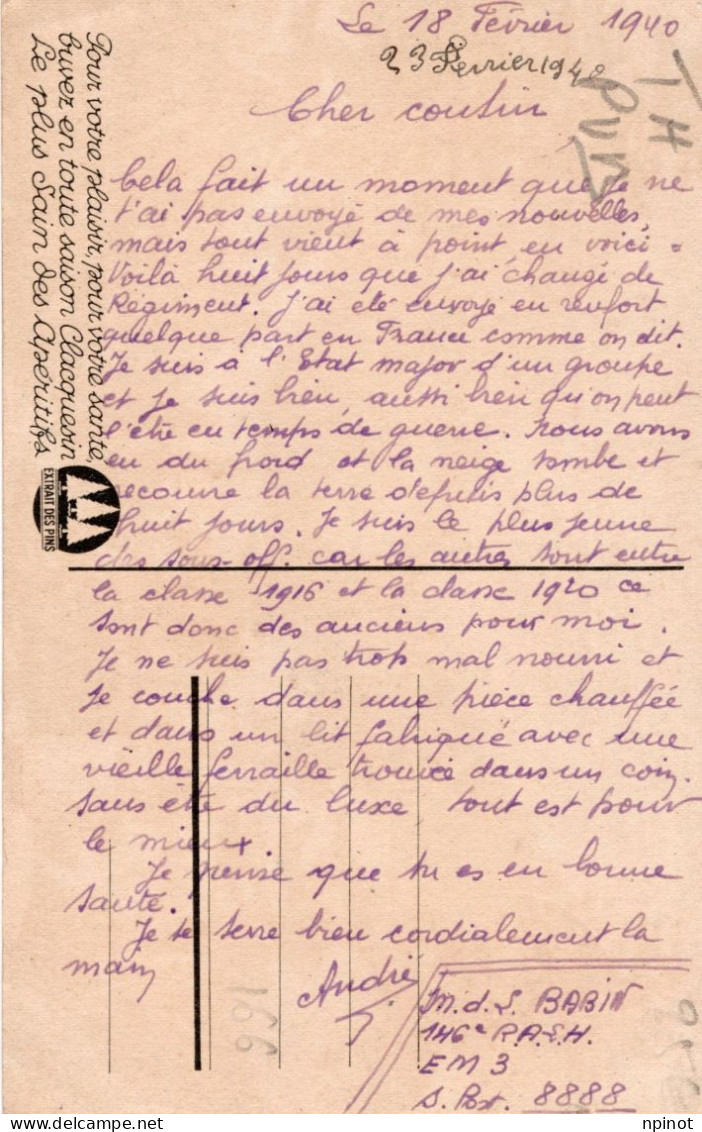 Le 18 Février 1940
23 Fevrier 1940
Cher cousin
Cela fait un moment que je ne
t'ai pas envoyé de mes nouvelles,
mais tout vient à point, en voici =
Voilà huit jours que j'ai changé de
Régiment. J'ai été envoyé en renfort
quelque part en France comme on dit.
Je suis à l'Etat major d'un groupe
et je suis bien, aussi bien qu'on peut
l'être en temps de guerre. Nous avons
eu du froid et la neige tombe et
recouvre la terre depuis plus de
huit jours. Je suis le plus jeune
des sous-off. car les autres sont entre
la classe 1916 et la classe 1920 ce
sont donc des anciens pour moi.
Je ne suis pas trop mal nourri et
je couche dans une pièce chauffée
et dans un lit fabriqué avec une
vieille ferraille trouvée dans un coin.
Sans être du luxe tout est pour
le mieux.
Je pense que tu es en bonne
santé.
Je te serre bien cordialement la
main
André
M.d.L. BABIN
146e R.A.L.H.
EM 3
S. Post. 8888
Pour votre plaisir, pour votre santé,
buvez en toute saison Clacquesin
Le plus Sain des Apéritifs
EXTRAIT DES PINS
166
Copyright : npinot